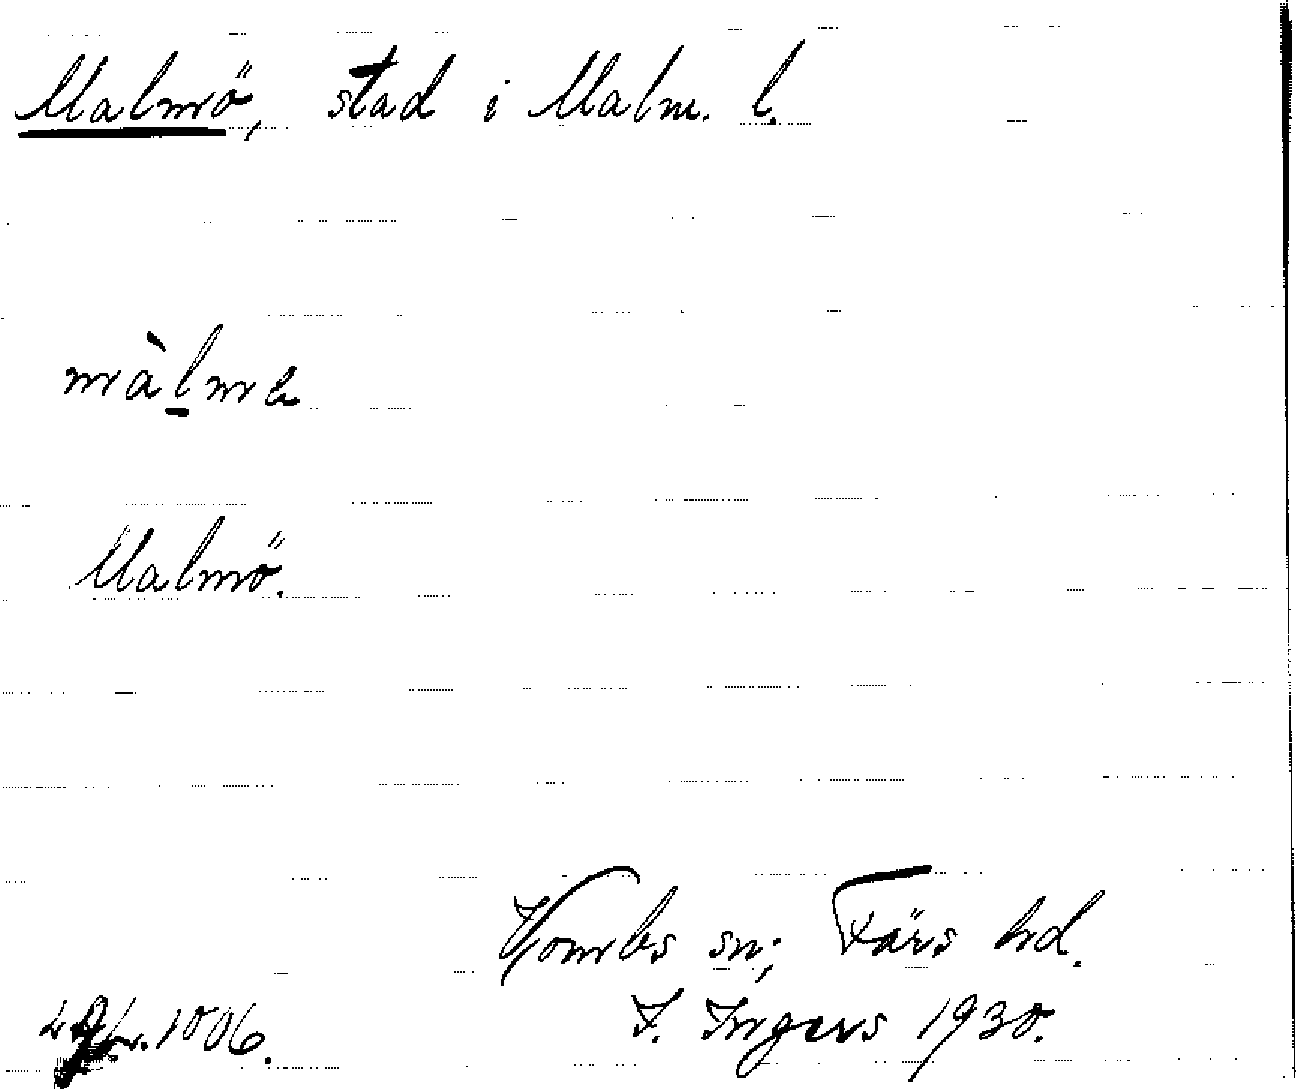 Malmö, stad i Malm. l.
màl̲mə
Malmö.
Vombs sn; Färs hd.
I. Ingers 1930.
1006.